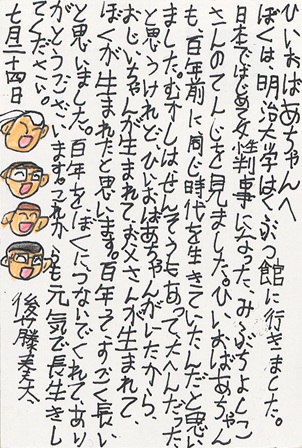 ひいおばあちゃんへ
ぼくは、明治大学はくぶつ館に行きました。
日本ではじめて女性判事になった、みぶちよしこ
さんのてんじを見ました。ひいおばあちゃん
も、百年前に同じ時代を生きていたんだと思い
ました。むかしはせんそうもあって大へんだった
と思うけれど、ひいおばあちゃんがいたから、
おじいちゃんが生まれて、お父さんが生まれて、
ぼくが生まれたと思います。百年ってすごく長い
と思いました。百年をぼくにつないでくれて、あり
がとうございます。これからも元気で長生きし
てください。
七月二十四日
後藤奏太